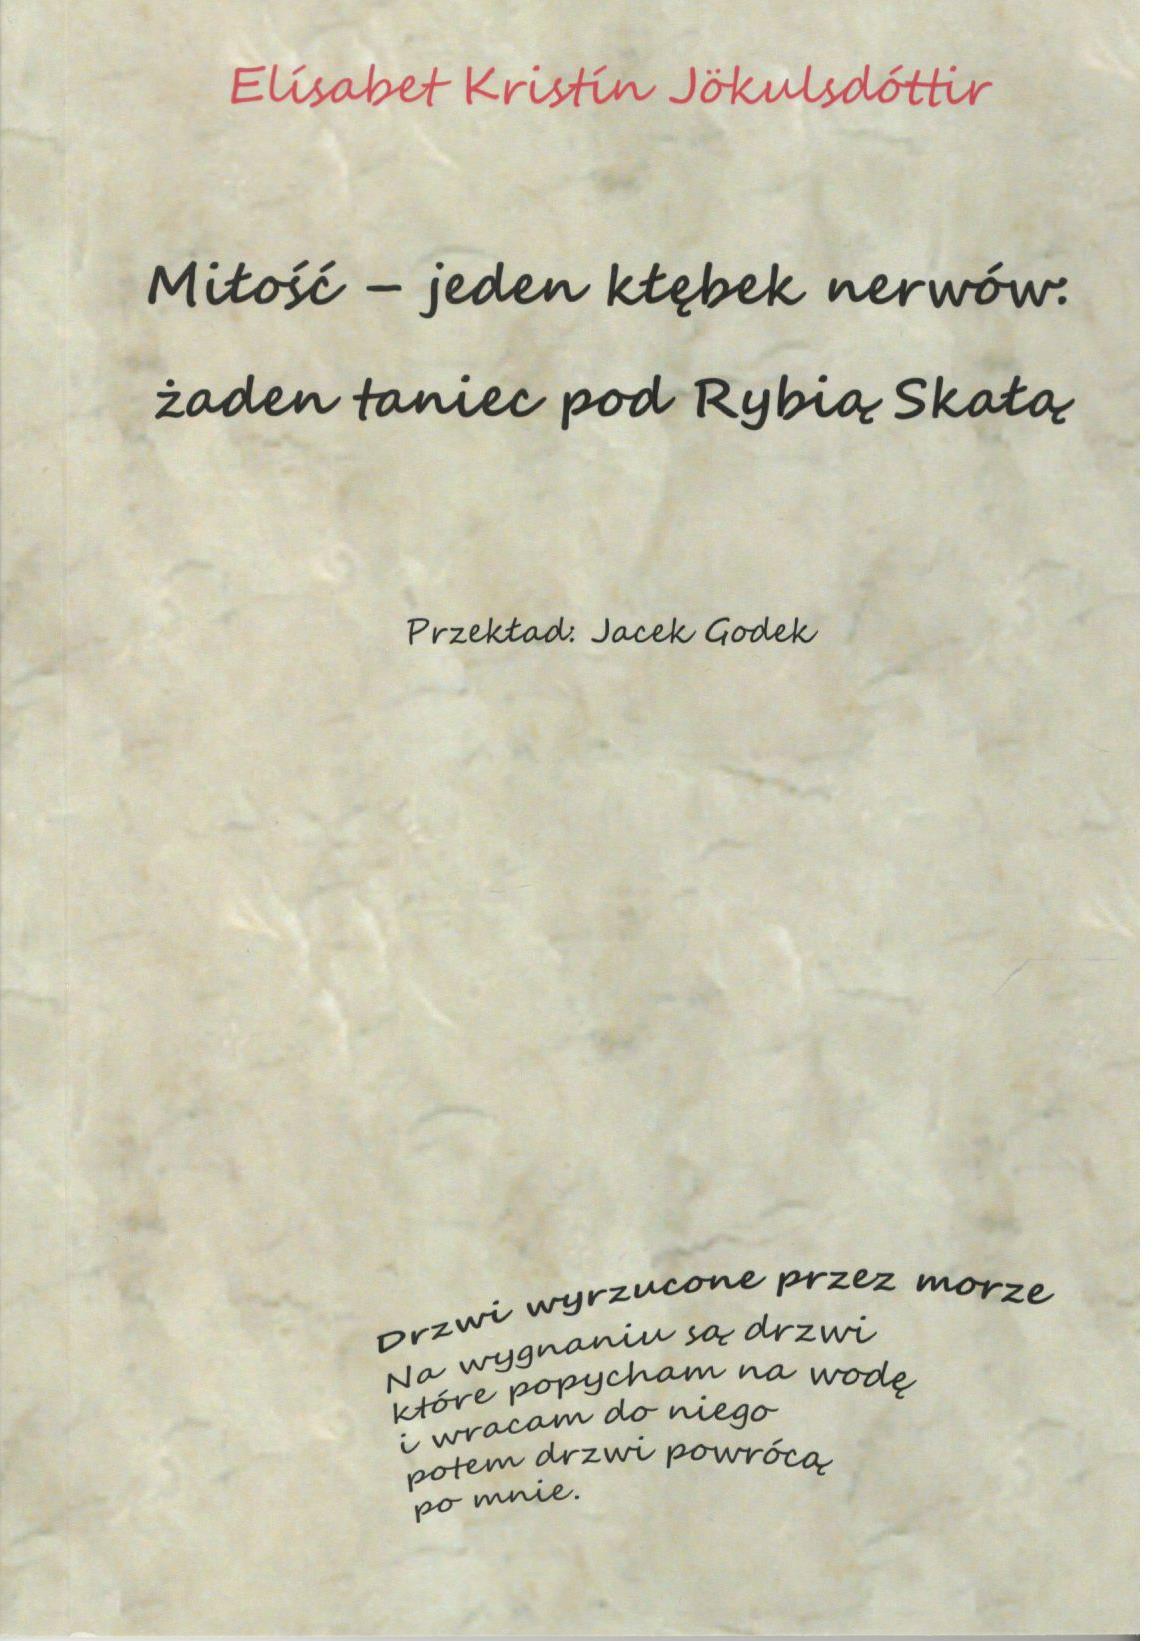 Elísabet Kristín Jökulsdóttir
Miłość – jeden kłębek nerwów:
żaden taniec pod Rybią Skałą
Przekład: Jacek Godek
Drzwi wyrzucone przez morze
Na wygnaniu są drzwi
które popycham na wodę
i wracam do niego
potem drzwi powrócą
po mnie.